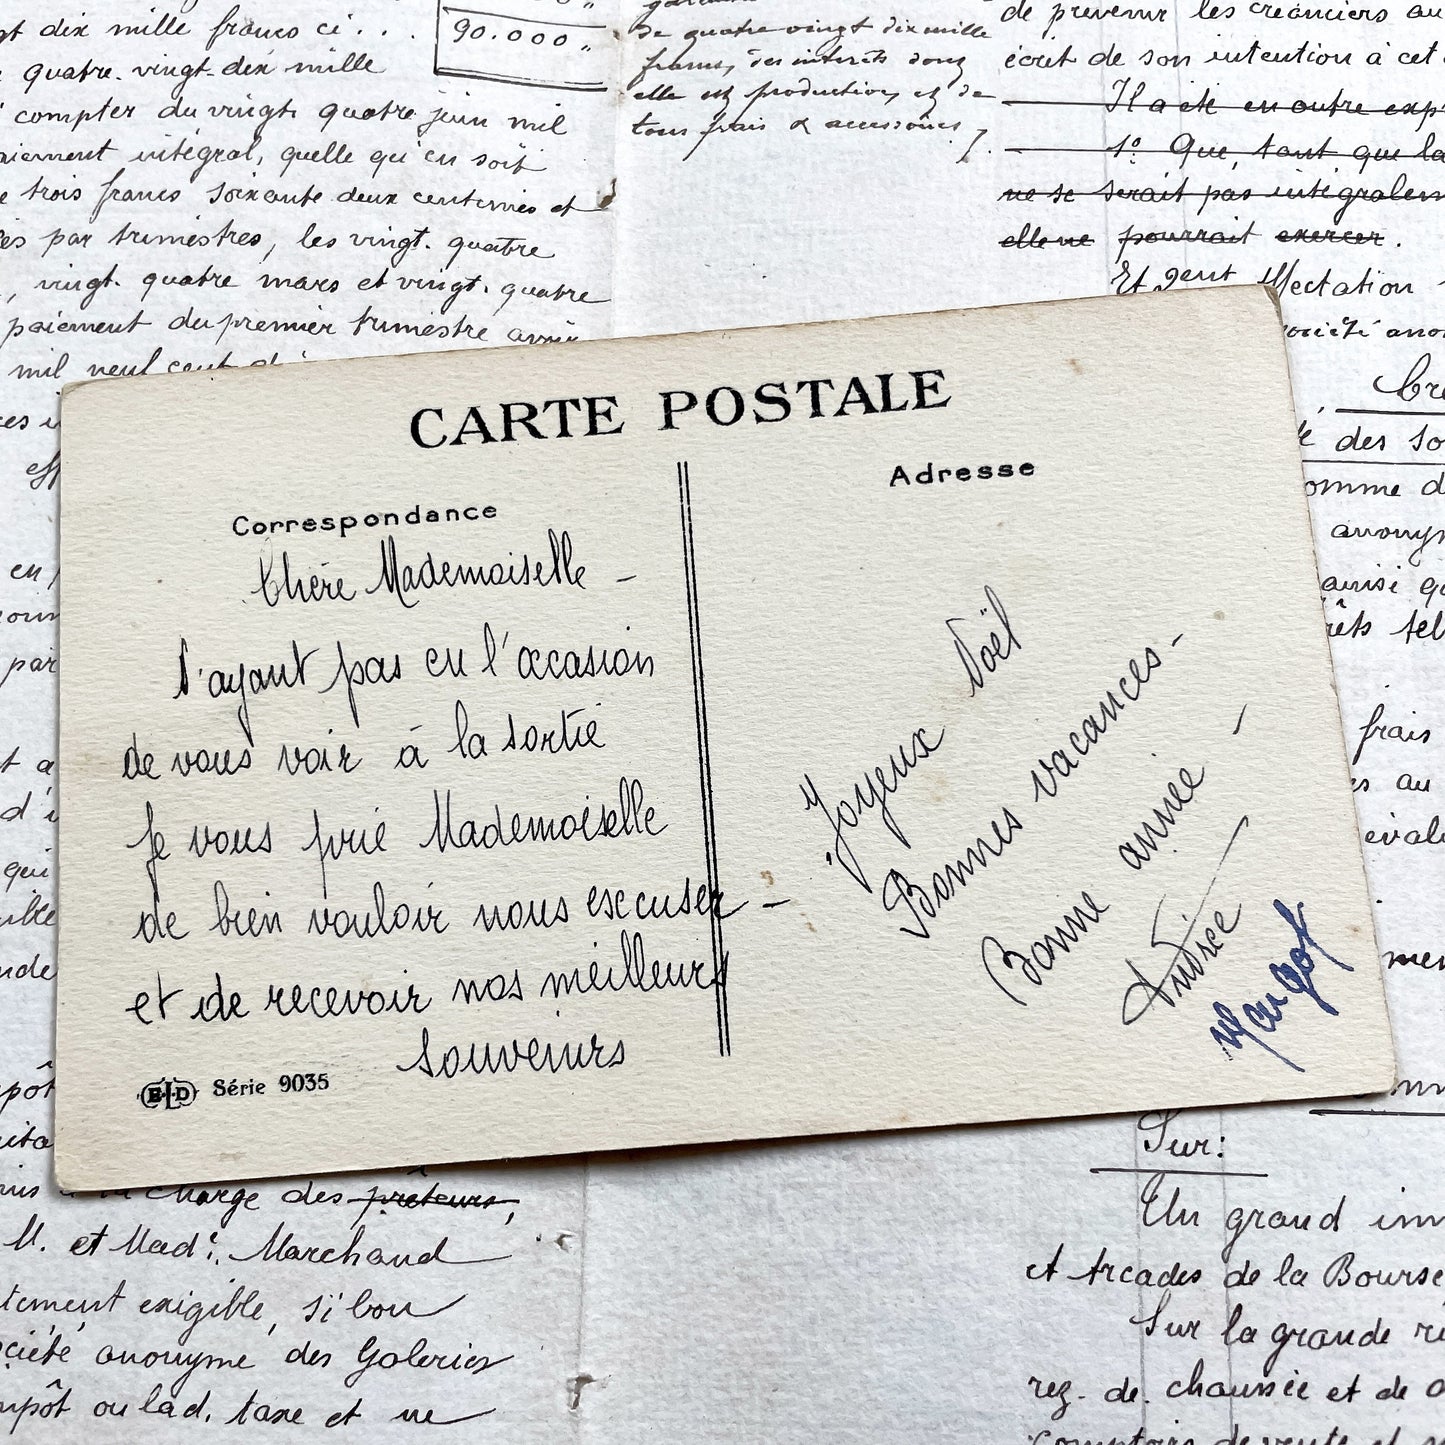 gt dix mille francs ci . . .
90.000 "
quatre-vingt-dix mille
compter du vingt quatre juin mil
paiement intégral, quelle qu'en soit
trois francs soixante deux centimes et
par trimestres, les vingt-quatre
, vingt-quatre mars et vingt-quatre
paiement du premier trimestre
mil neuf cent
de quatre vingt dix mille
francs, des intérêts dont
elle est production, et de
tous frais & accessoires
de prévenir les créanciers
écrit de son intention à cet
Il a été en outre exp
1° Que, tant que la
ne se serait pas intégralem
elle ne pourrait exercer.
ffectation
ociété ano
Cré
des so
omme d
anonym
ainsi q
rêts tel
frais
es au
évalu
CARTE POSTALE
Correspondance
Chère Mademoiselle -
N'ayant pas eu l'occasion
de vous voir à la sortie
Je vous prie Mademoiselle
de bien vouloir nous excuser -
et de recevoir nos meilleurs
souvenirs
ELD Série 9035
Adresse
Joyeux Noël
Bonnes vacances -
Bonne année -
Andrée
Margot
en
par
d'i
qui
la charge des prêteurs,
M. et Made. Marchand
tement exigible, si bon
ociété anonyme des Galeries
mpôt ou lad. taxe et ne
Sur:
Un grand imm
et Arcades de la Bourse
Sur la grande r
rez-de-chaussée et de
comptoirs de vente et